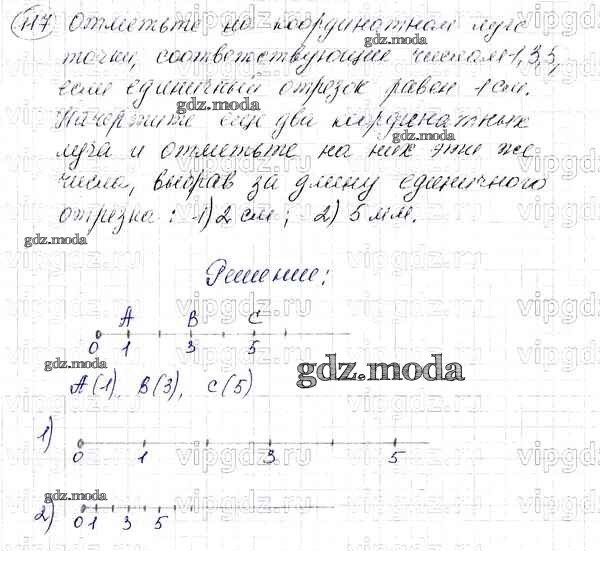 117 Отметьте на координатном луче
точки, соответствующие числам 1, 3, 5,
gdz.moda
если единичный отрезок равен 1 см.
gdz.moda
Начертите еще два координатных
gdz.moda
луча и отметьте на них эти же
числа, выбрав за длину единичного
отрезка: 1) 2 см; 2) 5 мм.
gdz.moda
Решение:
vipgdz.ru vipgdz.ru vipgdz.ru
A B C
gdz.moda
0 1 3 5
gdz.moda
A(1), B(3), C(5)
1)
0 1 3 5
gdz.moda
2)
0 1 3 5